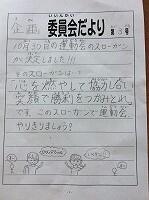 いいんかい
企画 委員会だより 第3号
10月30日の運動会のスローガン
が決定しました!!!
そのスローガンは…
心を燃やして協力し合い
笑顔で勝利をつかみとれ
です。このスローガンで運動会
やりきりましょう?